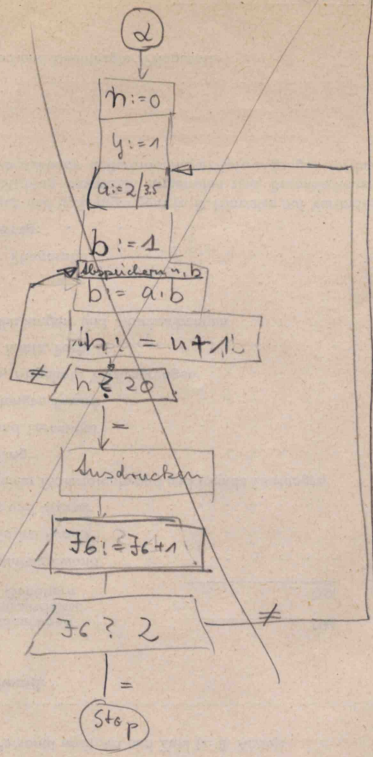 α
n:=0
y:=1
a:=2/3.5
b:=1
Abspeichern n, b
b:= a·b
n:=n+1
≠
n ? 20
=
Ausdrucken
J6:=J6+1
J6 ? 2
≠
=
Stop